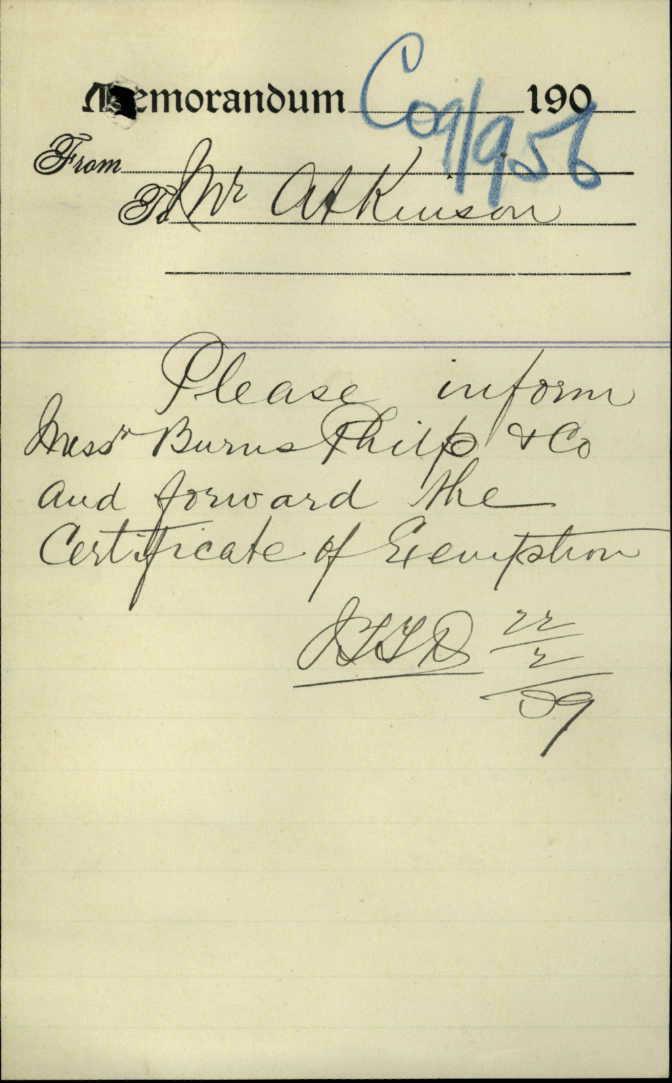 Memorandum 190
C09/956
From
To Mr Atkinson
Please inform
Messrs Burns Philp & Co
and forward the
Certificate of Exemption
22/2/09